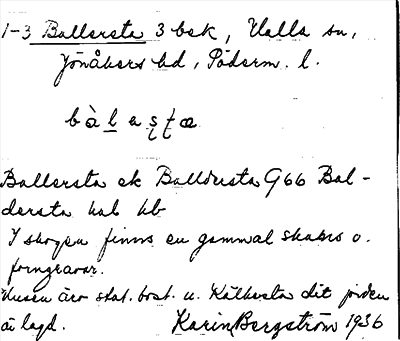 1-3 Ballersta 3 bsk, Halla sn,
Jönåkers hd, Söderm. l.
bàlaʂʈa
Ballersta ek Balldersta G66 Bal-
dersta hab hb
I skogen finns en gammal skans o.
forngravar.
Husen äro stat. bost. u. Kälkesta dit jorden
är lagd. Karin Bergström 1936